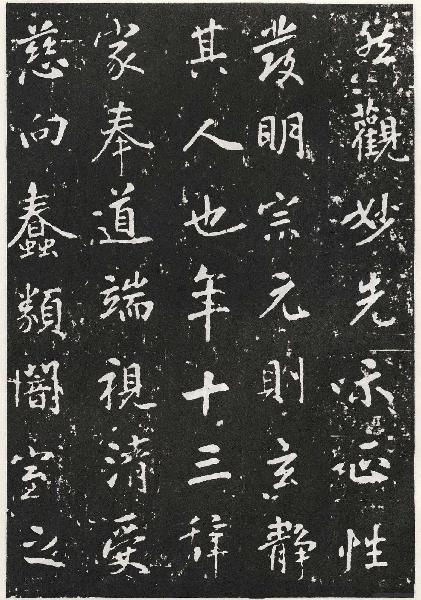 然觀妙先味正性
發明宗元則玄靜
其人也年十三辭
家奉道端視清受
慈向蠢類室之